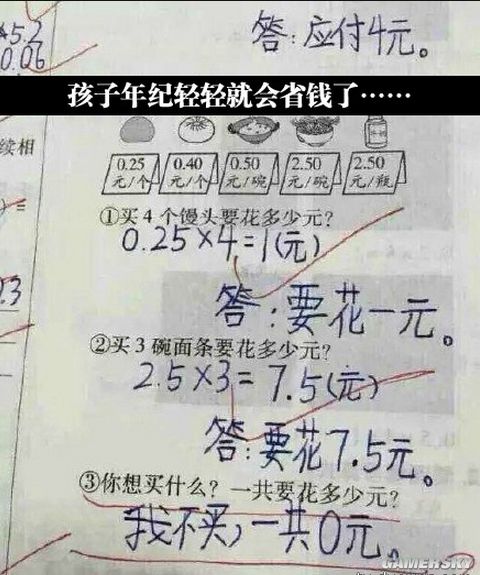 ×5.2
0.06
答:应付4元。
孩子年纪轻轻就会省钱了……
续相
0.25 0.40 0.50 2.50 2.50
元/个 元/个 元/碗 元/碗 元/瓶
①买4个馒头要花多少元?
0.25×4=1(元)
答:要花一元。
②买3碗面条要花多少元?
2.5×3=7.5(元)
答:要花7.5元。
③你想买什么?一共要花多少元?
我不买,一共0元。
GAMERSKY